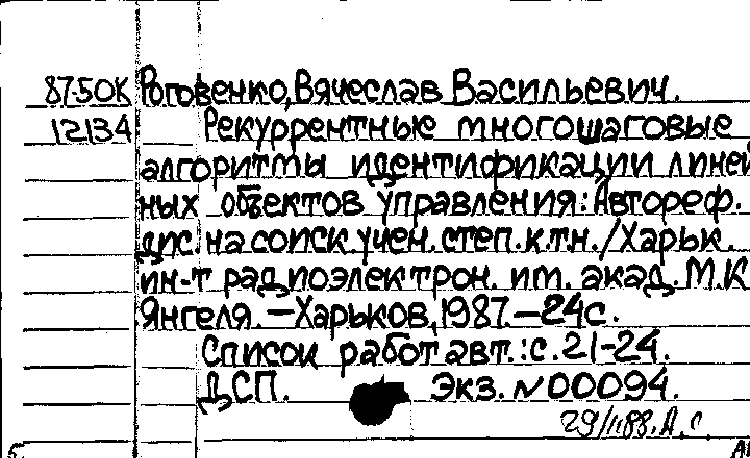 87-50К Роговенко, Вячеслав Васильевич.
12134 Рекуррентные многошаговые
алгоритмы идентификации линей
ных объектов управления: Автореф.
дис. на соиск. учен. степ. к.т.н. / Харьк.
ин-т радиоэлектрон. им. акад. М.К
Янгеля. — Харьков, 1987. — 24 с.
Список работ авт.: с. 21-24.
ДСП. Экз. N 00094.